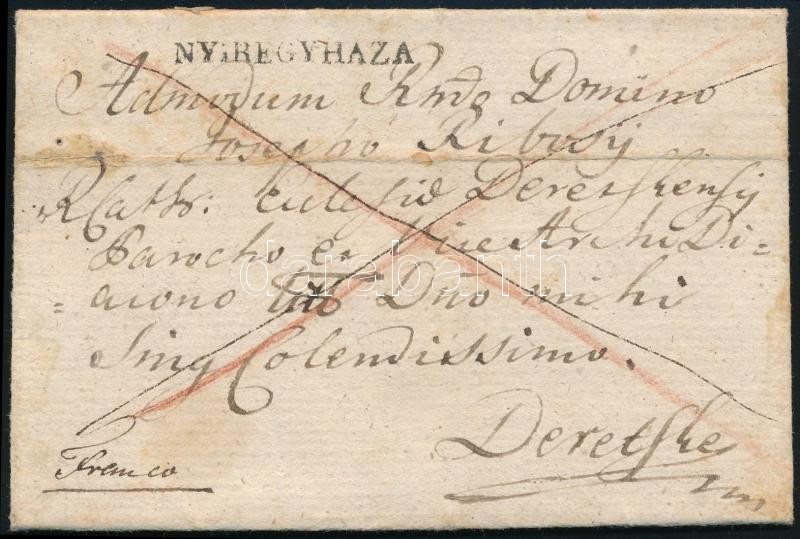 NYiREGYHAZA
Admodum Rndo Domino
Josepho Ribosÿ
RCath: Eclesiæ Deretskensÿ
Parocho et Vice Archi Di=
=acono Dno mihi
Sing Colendissimo.
Deretske
Franco
darabanth